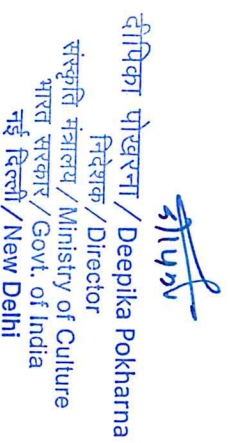 दीपिका
दीपिका पोखरना / Deepika Pokharna
निदेशक / Director
संस्कृति मंत्रालय / Ministry of Culture
भारत सरकार / Govt. of India
नई दिल्ली / New Delhi